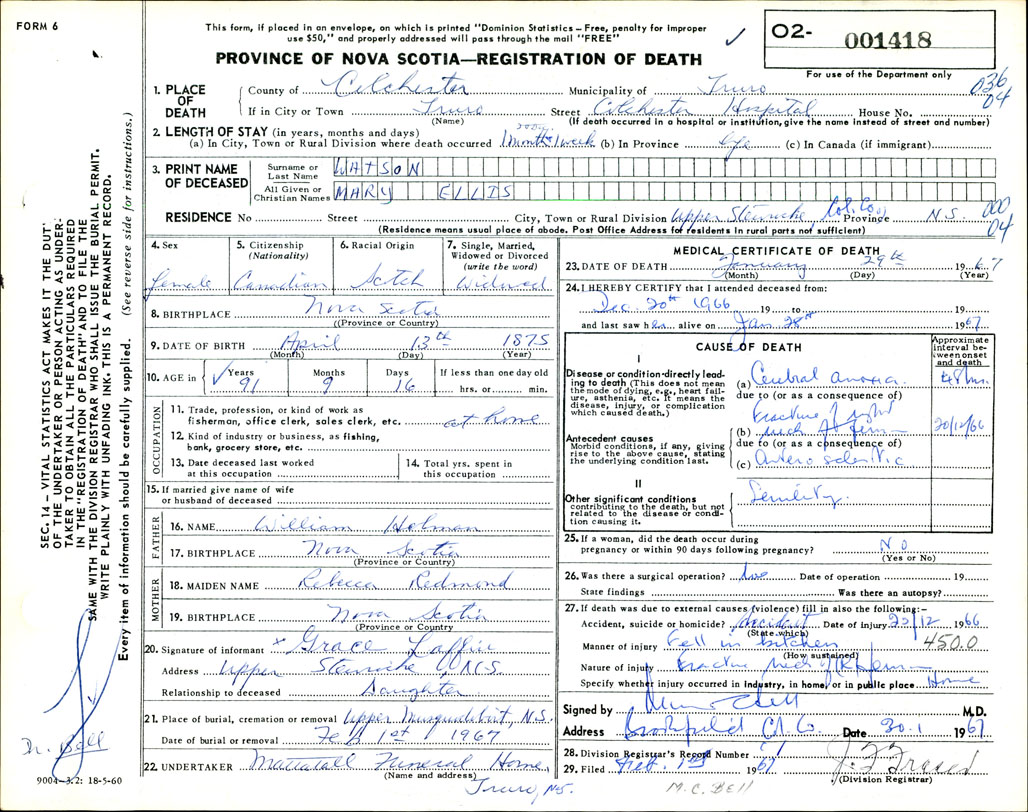 FORM 6
This form, if placed in an envelope, on which is printed "Dominion Statistics—Free, penalty for improper
use $50," and properly addressed will pass through the mail "FREE"
O2- 001418
PROVINCE OF NOVA SCOTIA—REGISTRATION OF DEATH
For use of the Department only
1. PLACE OF DEATH
County of Colchester Municipality of Truro 036
04
If in City or Town Truro Street Colchester Hospital House No.
(Name) (If death occurred in a hospital or institution, give the name instead of street and number)
2. LENGTH OF STAY (in years, months and days)
(a) In City, Town or Rural Division where death occurred 1 month 1 week (b) In Province life (c) In Canada (if immigrant)
3. PRINT NAME OF DECEASED
Surname or Last Name WATSON
All Given or Christian Names MARY ELLIS
RESIDENCE No Street City, Town or Rural Division Upper Stewiacke Col. Co. Province N.S. 000
04
(Residence means usual place of abode. Post Office Address for residents in rural parts not sufficient)
4. Sex
female
5. Citizenship
(Nationality)
Canadian
6. Racial Origin
Scotch
7. Single, Married,
Widowed or Divorced
(write the word)
Widowed
8. BIRTHPLACE Nova Scotia
(Province or Country)
9. DATE OF BIRTH April 13th 1875
(Month) (Day) (Year)
10. AGE in Years 91 Months 9 Days 16 If less than one day old
hrs. or min.
OCCUPATION
11. Trade, profession, or kind of work as
fisherman, office clerk, sales clerk, etc. at home
12. Kind of industry or business, as fishing,
bank, grocery store, etc.
13. Date deceased last worked
at this occupation
14. Total yrs. spent in
this occupation
15. If married give name of wife
or husband of deceased
FATHER
16. NAME William Holman
17. BIRTHPLACE Nova Scotia
(Province or Country)
MOTHER
18. MAIDEN NAME Rebecca Redmond
19. BIRTHPLACE Nova Scotia
(Province or Country
20. Signature of informant x Grace Laffin
Address Upper Stewiacke, N.S.
Relationship to deceased Daughter
21. Place of burial, cremation or removal Upper Musquodobit, N.S.
Date of burial or removal Feb 1st 1967
22. UNDERTAKER Mattatall Funeral Home,
(Name and address)
Truro, N.S.
MEDICAL CERTIFICATE OF DEATH
23. DATE OF DEATH January 29th 1967
(Month) (Day) (Year)
24. I HEREBY CERTIFY that I attended deceased from:
Dec 20th 1966 19 to 19
and last saw her alive on Jan 28th 1967
CAUSE OF DEATH
Approximate
interval be-
tween onset
and death
I
Disease or condition directly lead-
ing to death (This does not mean
the mode of dying, e.g., heart fail-
ure, asthenia, etc. It means the
disease, injury, or complication
which caused death.)
(a) Cerebral anoxia 48 hrs.
due to (or as a consequence of)
Fracture of right
(b) neck of femur 20/12/66
due to (or as a consequence of)
(c) Arterosclerotic
Antecedent causes
Morbid conditions, if any, giving
rise to the above cause, stating
the underlying condition last.
II
Other significant conditions
contributing to the death, but not
related to the disease or condi-
tion causing it.
Senility.
25. If a woman, did the death occur during
pregnancy or within 90 days following pregnancy? NO
(Yes or No)
26. Was there a surgical operation? Date of operation 19
State findings Was there an autopsy?
27. If death was due to external causes (violence) fill in also the following:—
Accident, suicide or homicide? Accident Date of injury 20/12 1966
(State which)
Manner of injury Fell in kitchen 450.0
(How sustained)
Nature of injury Fracture neck of (R) femur
Specify whether injury occurred in industry, in home, or in public place Home
Signed by M.D.
Address Brookfield Col. Co. Date 30.1 1967
28. Division Registrar's Record Number
29. Filed Feb. 1st 1967 J. F. Fraser
(Division Registrar)
M.C. BELL
SEC. 14 — VITAL STATISTICS ACT MAKES IT THE DUTY
OF THE UNDERTAKER OR PERSON ACTING AS UNDER-
TAKER TO OBTAIN ALL THE PARTICULARS REQUIRED
IN THE "REGISTRATION OF DEATH" AND TO FILE THE
SAME WITH THE DIVISION REGISTRAR WHO SHALL ISSUE THE BURIAL PERMIT.
WRITE PLAINLY WITH UNFADING INK. THIS IS A PERMANENT RECORD.
Every item of information should be carefully supplied. (See reverse side for instructions.)
Dr. Bell
9004—3.2: 18-5-60